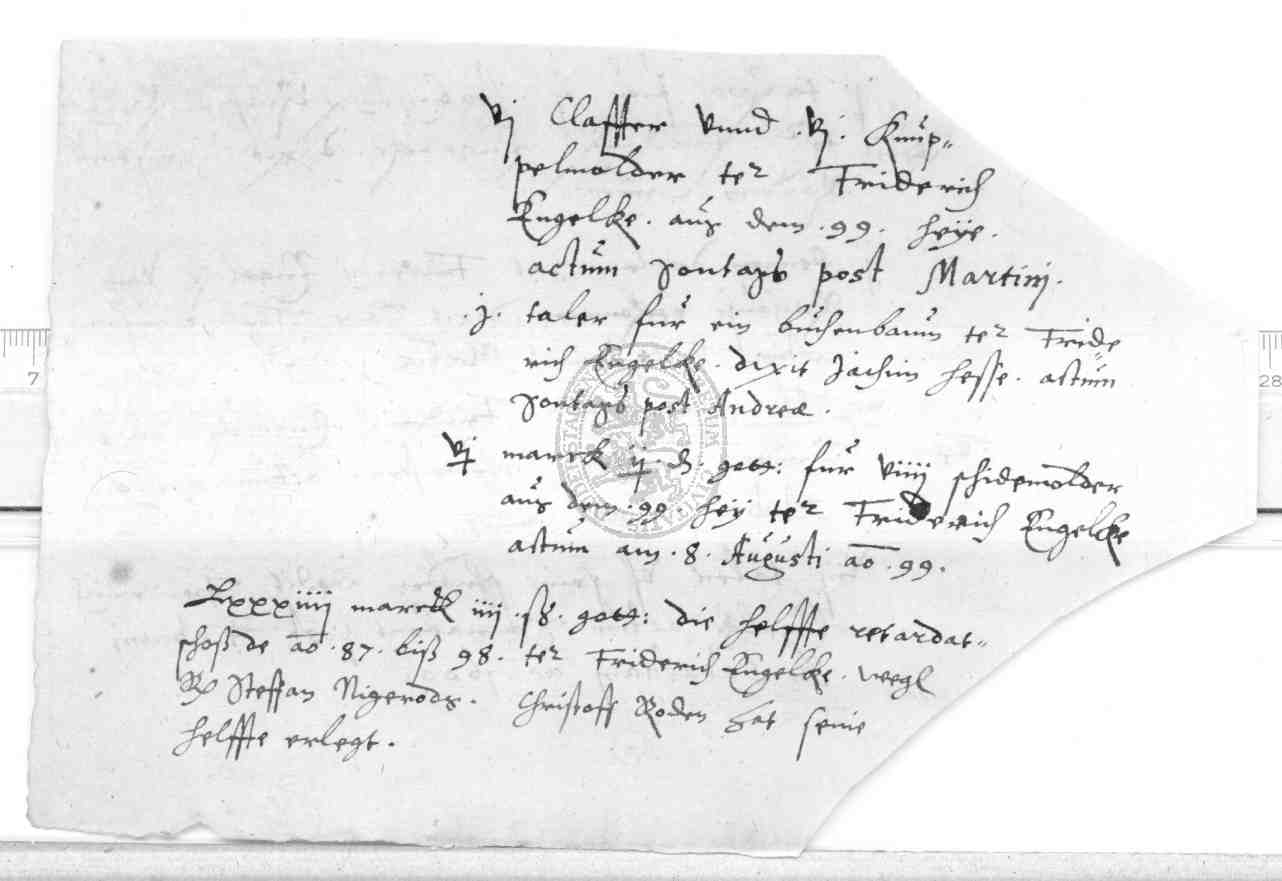 vj Claffter vnnd .vj. Knüp-
pelmolder ter Friderich
Engelke. auß dem .99. heye.
actum Sontags post Martinj.
.j. taler für ein buchenbaum ter Fride
rich Engelke. dixit Jachim Hesse. actum
Sontags post Andreæ.
vj marck ij .d. gott: für viiij schidemolder
auß dem .99. hey ter Friderich Engelcke
actum am .8. Augusti ao .99.
Lxxxiiij marck iiij .ß. gott: die helffte retardat-
schoß de ao .87. biß 98. ter Friderich Engelke. wegl
Steffan Nigerods. Christoff Roden hat seine
helffte erlegt.